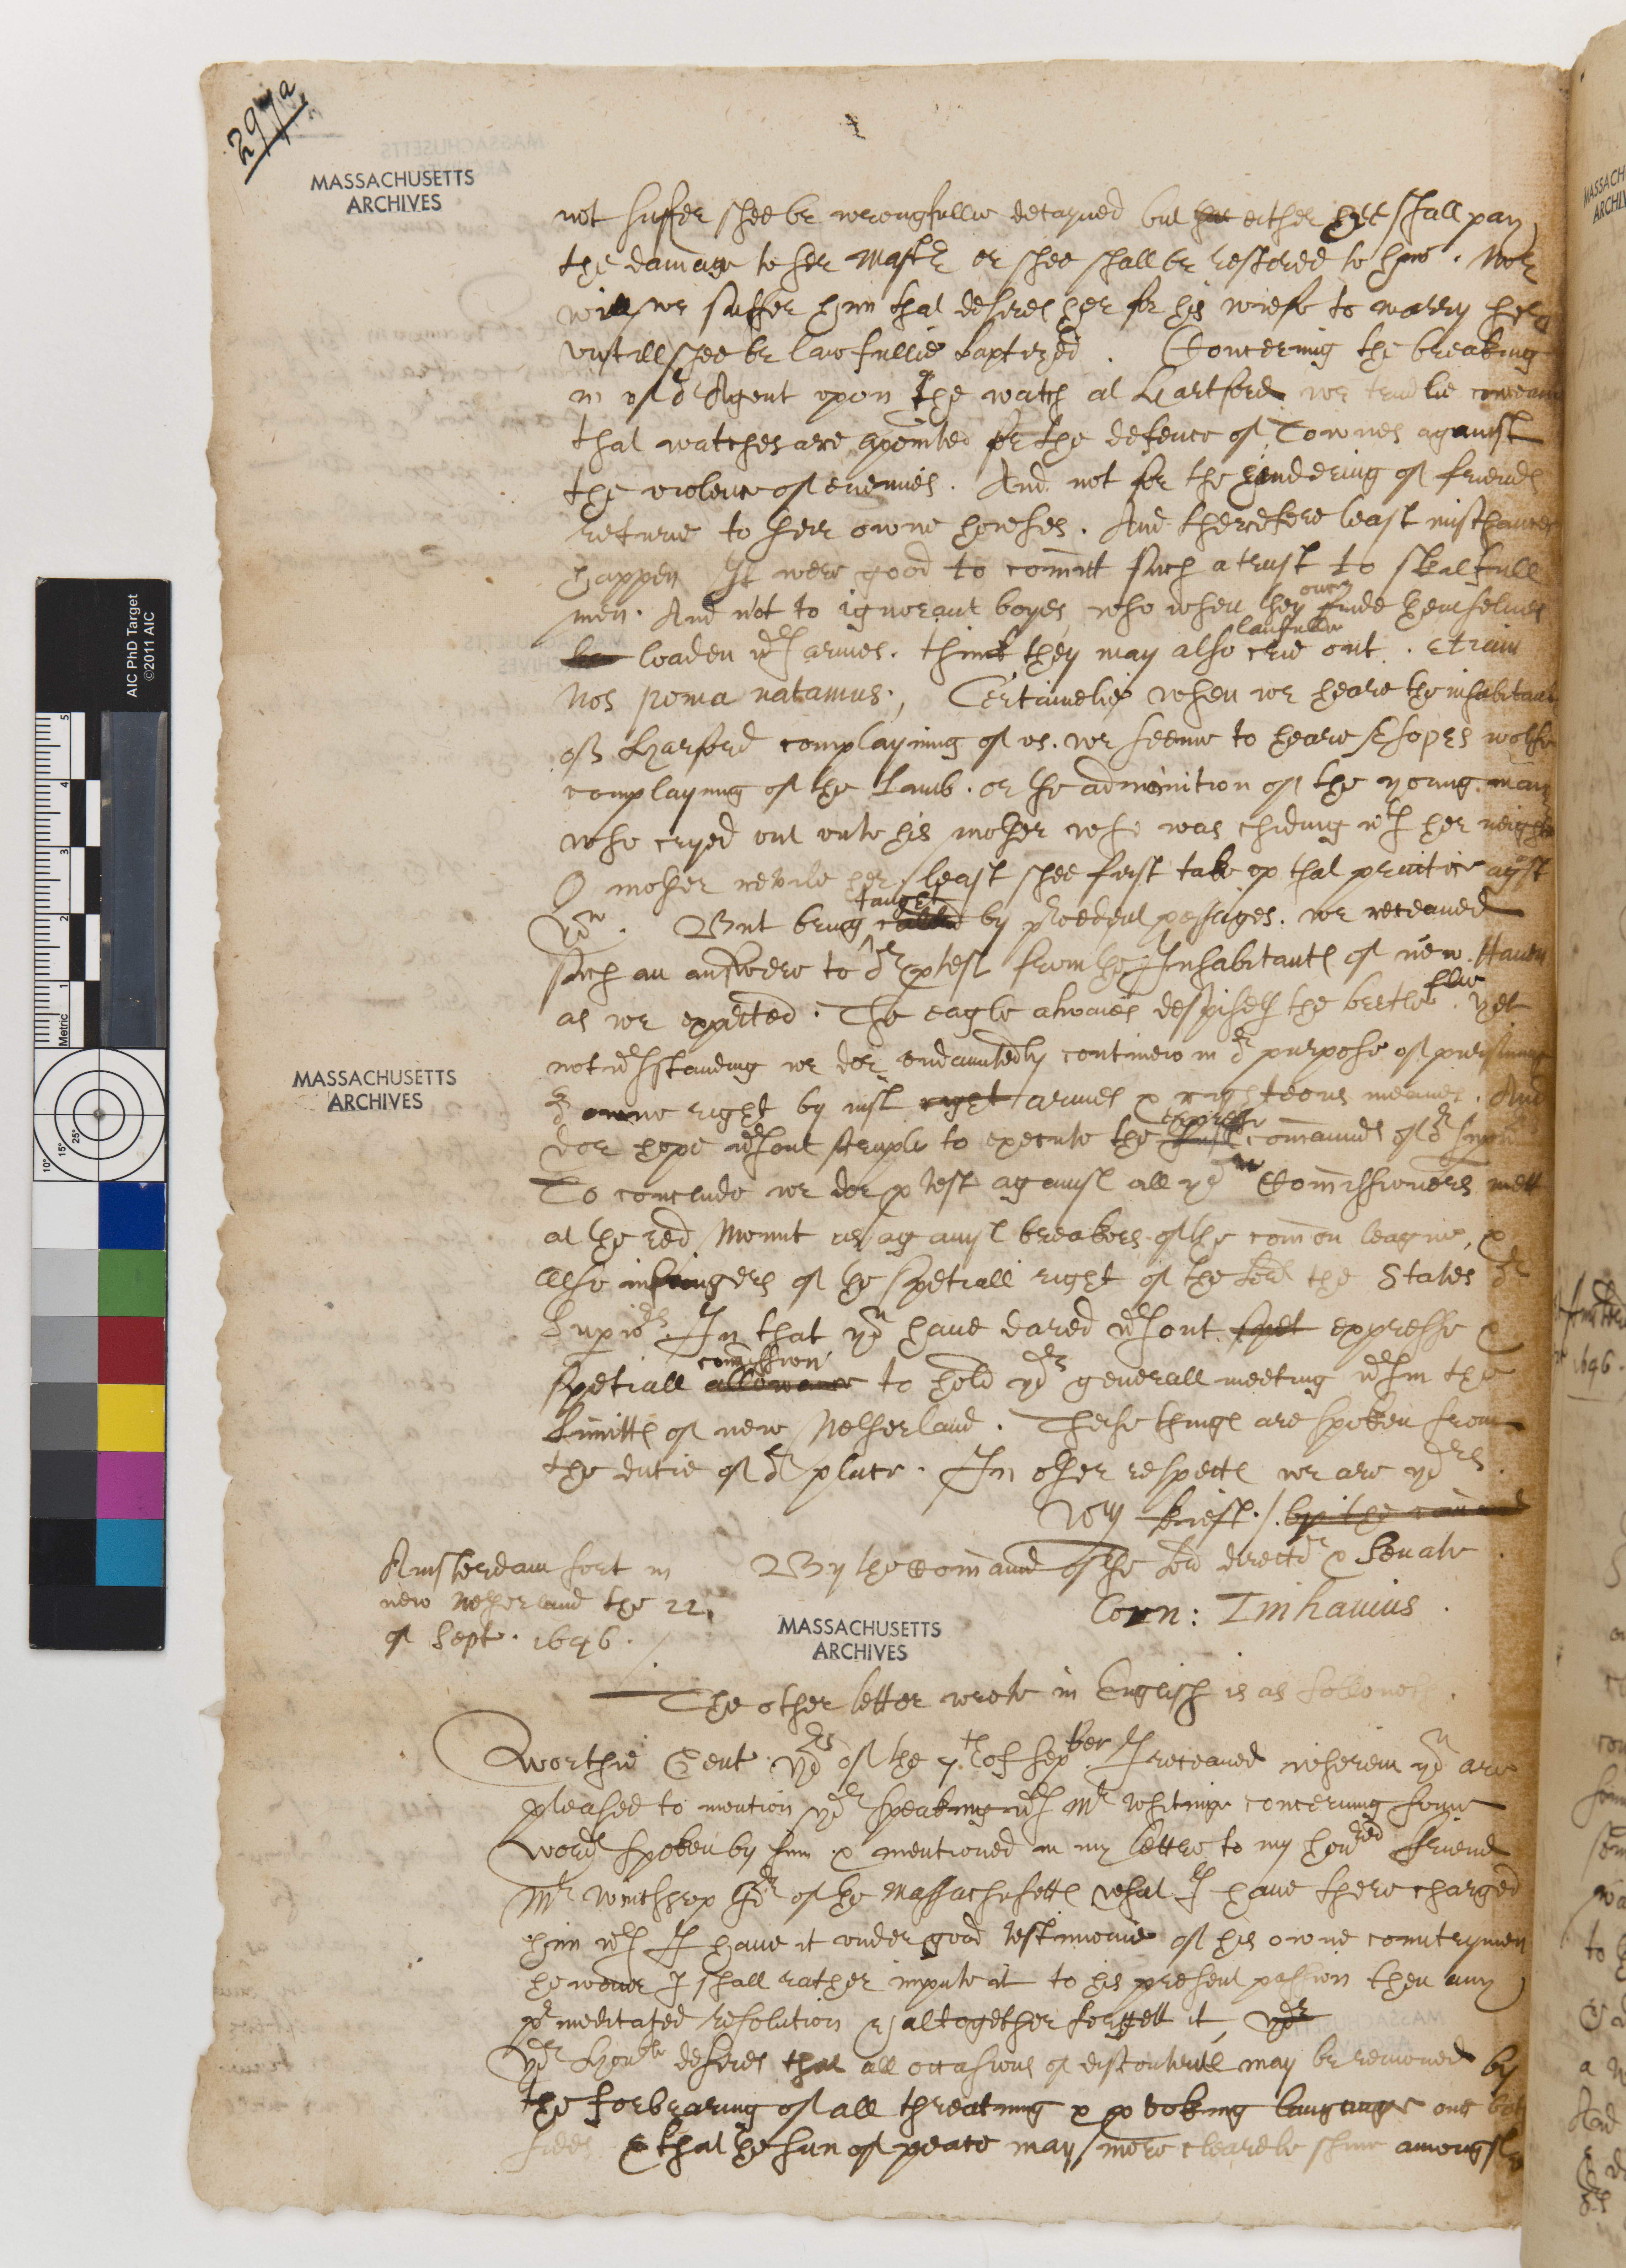 297a
MASSACHUSETTS
ARCHIVES
not suffer shee be wrongfullie detayned but hee either hee shall pay
the damage to her Mastr or shee shall be restored to him. Nor
will we suffer him that desires her for his wiefe to marry her
untill shee be lawfullie baptized. Concerning the breaking
in of or Agent upon the watch at Hartford we trulie conceaue
that watches are apointed for the defence of Townes against
the violence of enemies. And not for the hindering of friends
returne to their owne howses. And therefore least mischaunces
happen It were good to comitt such a trust to skilfull
men. And not to ignorant boyes who when they once finde themselues
loaden wth armes. thinke they may also lawfullie crie out. Etiam
Nos poma natamus, Certainelie when we heare the inhabitants
of Harford complayning of us. we seeme to heare Esopes wolfe
complayning of the Lamb. or the admonition of the young man
who cryed out unto his mother who was chiding wth her neighb
O mother revile her least shee first take up that practice agst
you. But being taught by precedent passages. we receaued
such an answere to or ptest from the Inhabitants of new Hauen
as we expected. The eagle alwaies despiseth the beetle flie. yet
notwthstanding we doe undauntedly continew in or purpose of pursuing
or owne right by iust right armes & righteous meanes. And
doe hope wthout scruple to execute the expresse comaunds of or
To conclude we doe ptest against all you Comissioners mett
at the red Mount as against breakers of the comon league, &
also infringers of the spetiall right of the lords the States or
Supiors In that you haue dared wthout expresse &
spetiall comission allowance to hold yor generall meeting wthin the
Limitts of new Netherland. These things are spoken from
the dutie of or place. In other respects we are yors
Wm Kieft. /. by the
Amsterdam fort in
new Netherland the 22
of Sept. 1646.
By the comaund of the lord directr & Senate
Corn: Tinhauius.
MASSACHUSETTS
ARCHIVES
MASSACHUSETTS
ARCHIVES
The other letter wrote in English is as followeth.
Worthie Gent yors of the 7th of Sepber I receaued wherein you are
pleased to mention yor speaking wth Mr Whitinge concerning some
words spoken by him & mentioned in my lettre to my honred ffriend
Mr Winthrop Gor of the Massachusetts what I haue there charged
him wth I haue it under good testimonie of his owne countrymen
howeuer I shall rather impute it to his present passion then any
pmeditated resolution & altogether forgett it, yor
yor Honble desires that all occasions of discontent may be remoued by
the forbearing of all threatning & pvoking language one both
sides & that the sun of peace may more clearely shine amongst